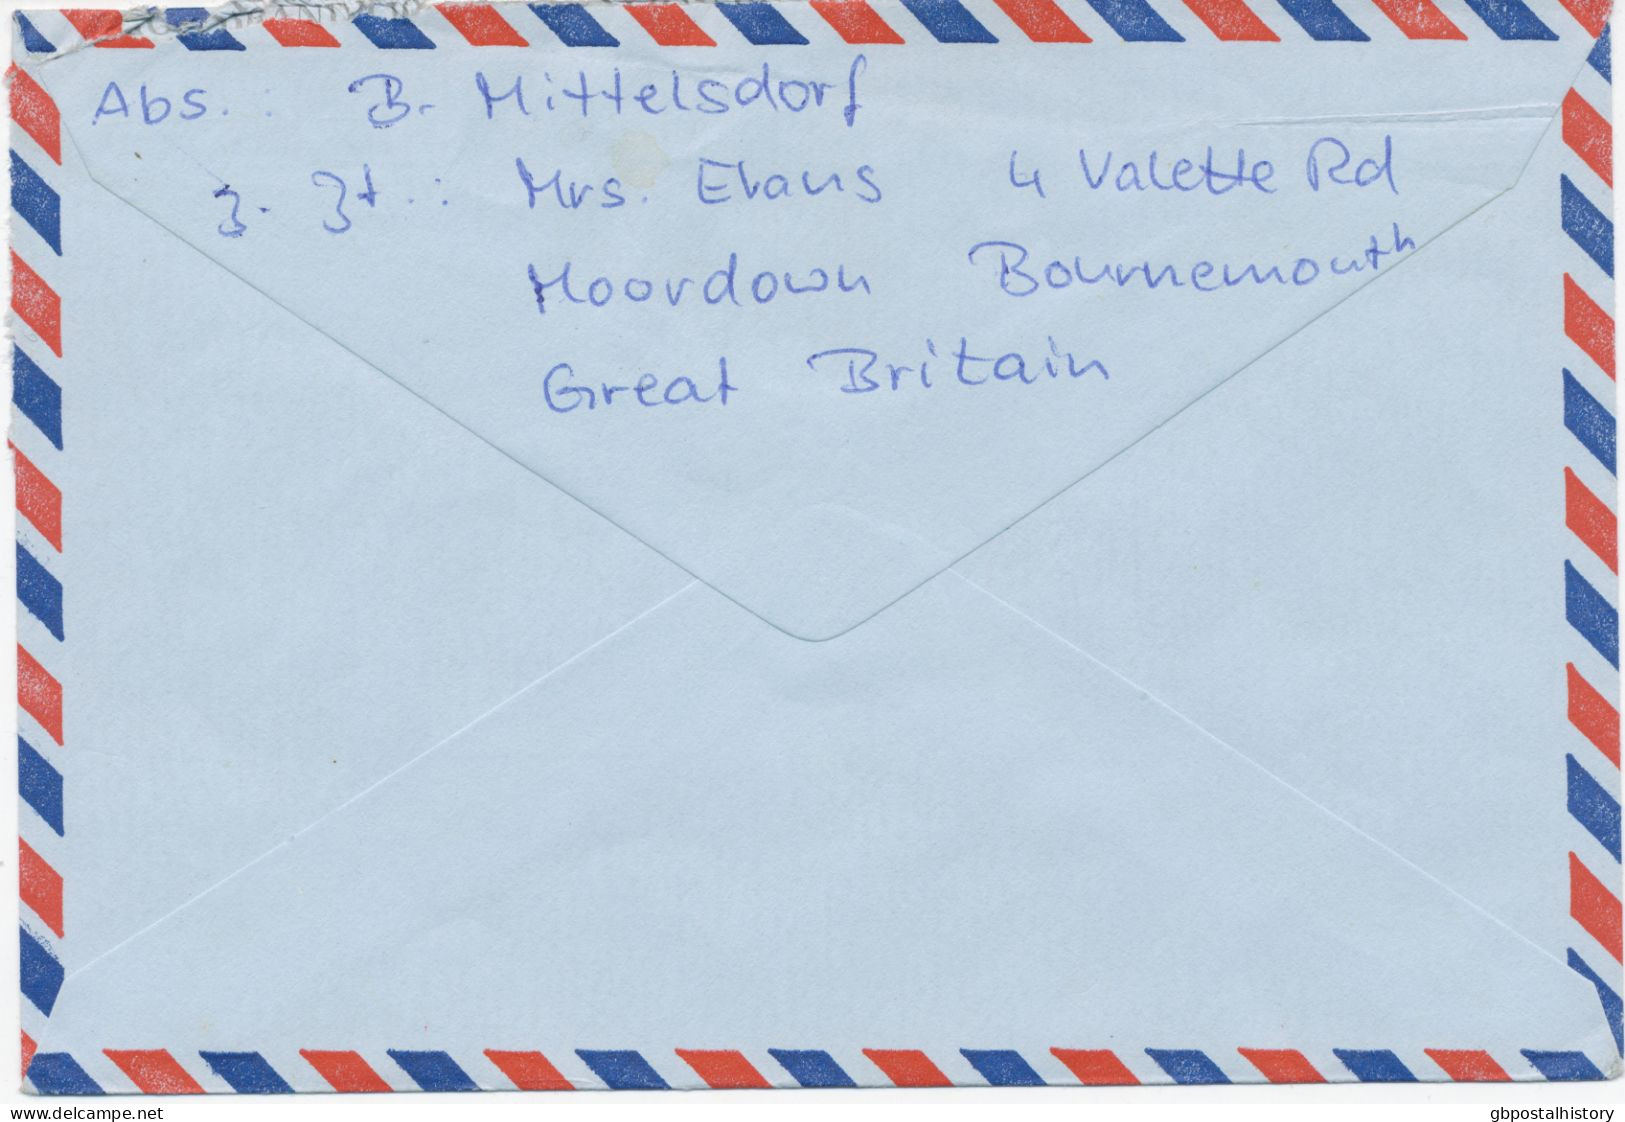 Abs.: B. Mittelsdorf
z. Zt.: Mrs. Evans 4 Valette Rd
Moordown Bournemouth
Great Britain
www.delcampe.net
gbpostalhistory